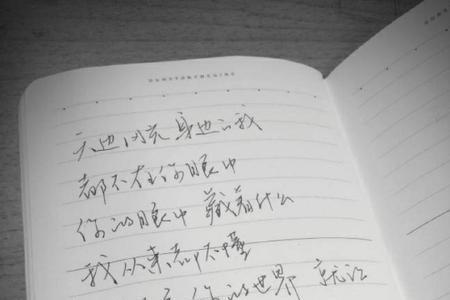 天边闪亮 身边的我
都不在你眼中
你的眼中 藏着什么
我从来都不懂
你的世界 就让